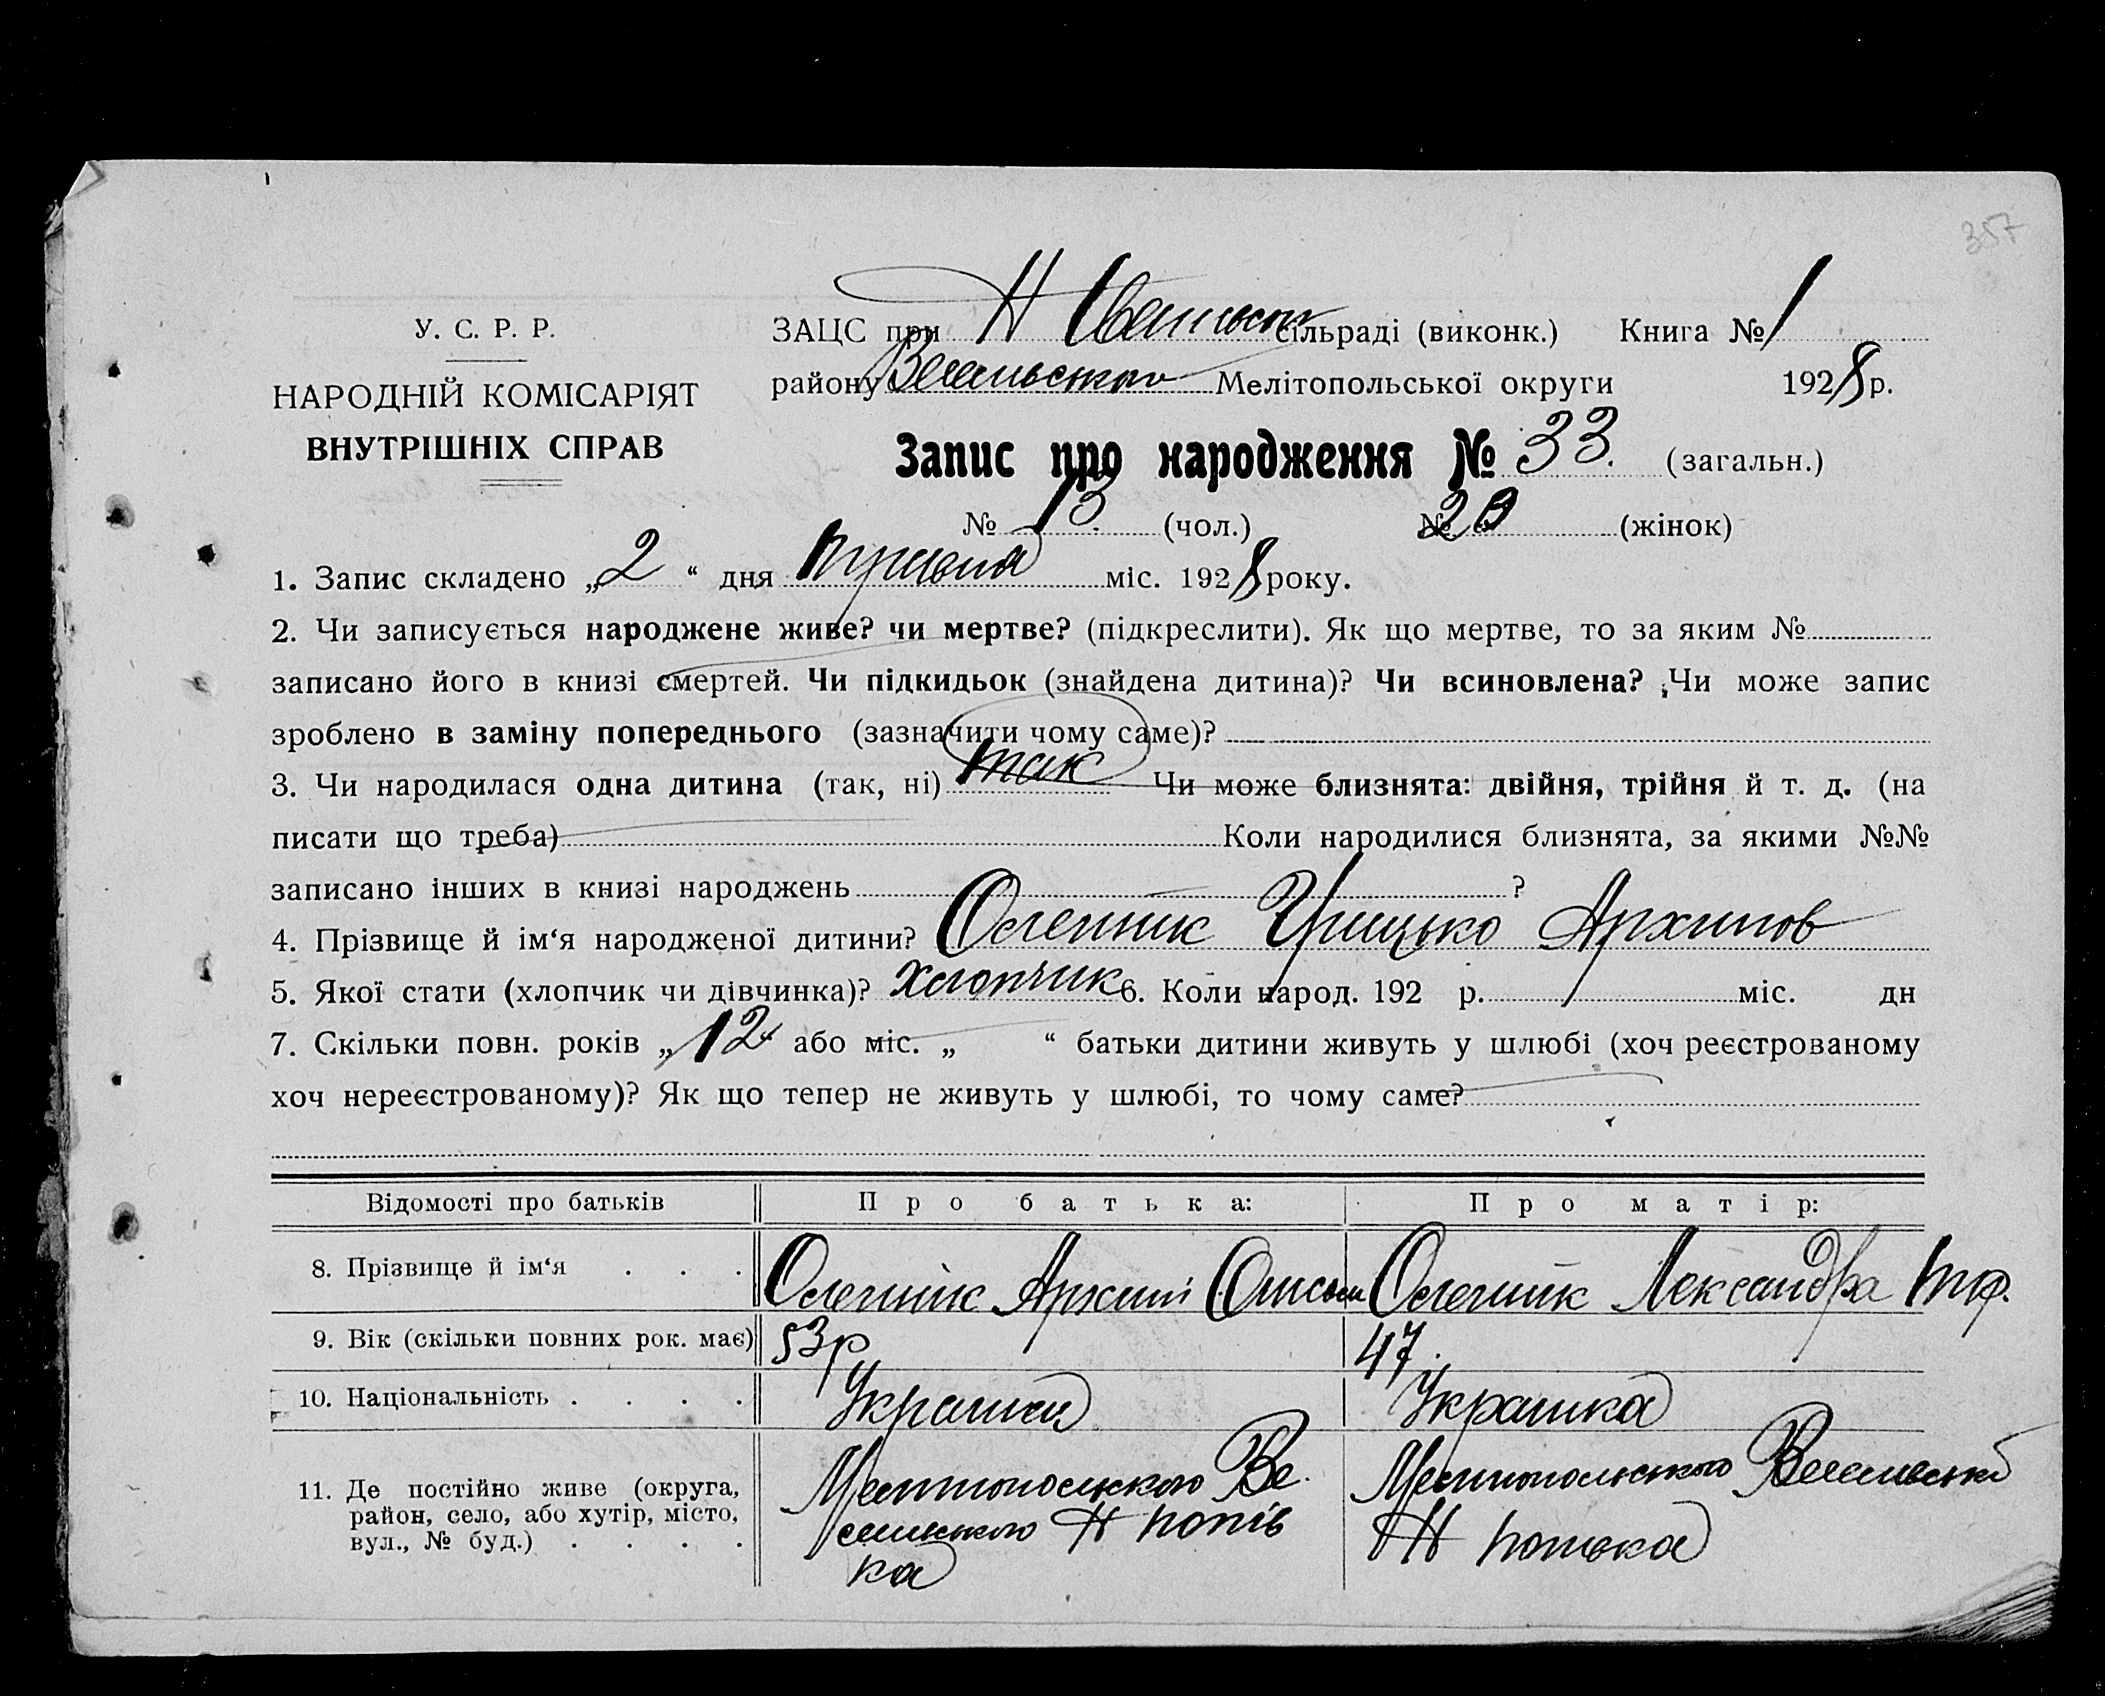 357
У. С. Р. Р.
НАРОДНІЙ КОМІСАРІЯТ
ВНУТРІШНІХ СПРАВ
ЗАЦС при Н сільраді (виконк.) Книга № 1
району Веселівського Мелітопольської округи 1928 р.
Запис про народження № 33. (загальн.)
№ 13. (чол.) № 20 (жінок)
1. Запис складено „2“ дня міс. 1928 року.
2. Чи записується народжене живе? чи мертве? (підкреслити). Як що мертве, то за яким №
записано його в книзі смертей. Чи підкидьок (знайдена дитина)? Чи всиновлена? Чи може запис
зроблено в заміну попереднього (зазначити чому саме)?
3. Чи народилася одна дитина (так, ні) так Чи може близнята: двійня, трійня й т. д. (на
писати що треба) Коли народилися близнята, за якими №№
записано інших в книзі народжень ?
4. Прізвище й ім‘я народженої дитини? Олейник Грицько Архипов
5. Якої стати (хлопчик чи дівчинка)? Хлопчик 6. Коли народ. 192 р. міс. дн
7. Скільки повн. років „12 або міс. „ “ батьки дитини живуть у шлюбі (хоч реєстрованому
хоч нереєстрованому)? Як що тепер не живуть у шлюбі, то чому саме?
Відомості про батьків Про батька: Про матір:
8. Прізвище й ім‘я . . . Олейник Архип Олейник Лександра
9. Вік (скільки повних рок. має) 53р 47.
10. Національність . . . . Украинка
11. Де постійно живе (округа,
район, село, або хутір, місто,
вул., № буд.) . . . .
Мелитопольского Ве
селивского Н Попів
ка
Мелитопольского
Н Попівка